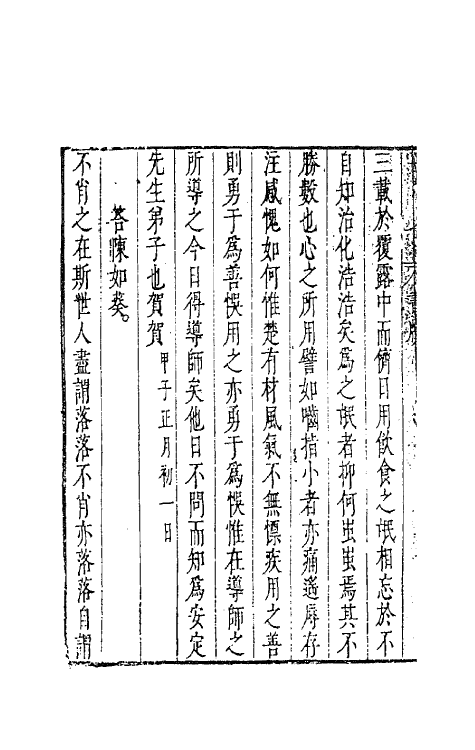 三載於覆露中而儕日用飲食之氓相忘於不
自知治化浩浩矣爲之氓者抑何虫虫焉其不
勝數也心之所用譬如嚙指小者亦痛遙辱存
注感愧如何惟楚有材風氣不無慓疾用之善
則勇于爲善悞用之亦勇于爲悞惟在導師之
所導之今日得導師矣他日不問而知爲安定
先生弟子也賀賀 甲子正月初一日
答陳如葵。
不肖之在斯世人盡謂落落不肖亦落落自謂